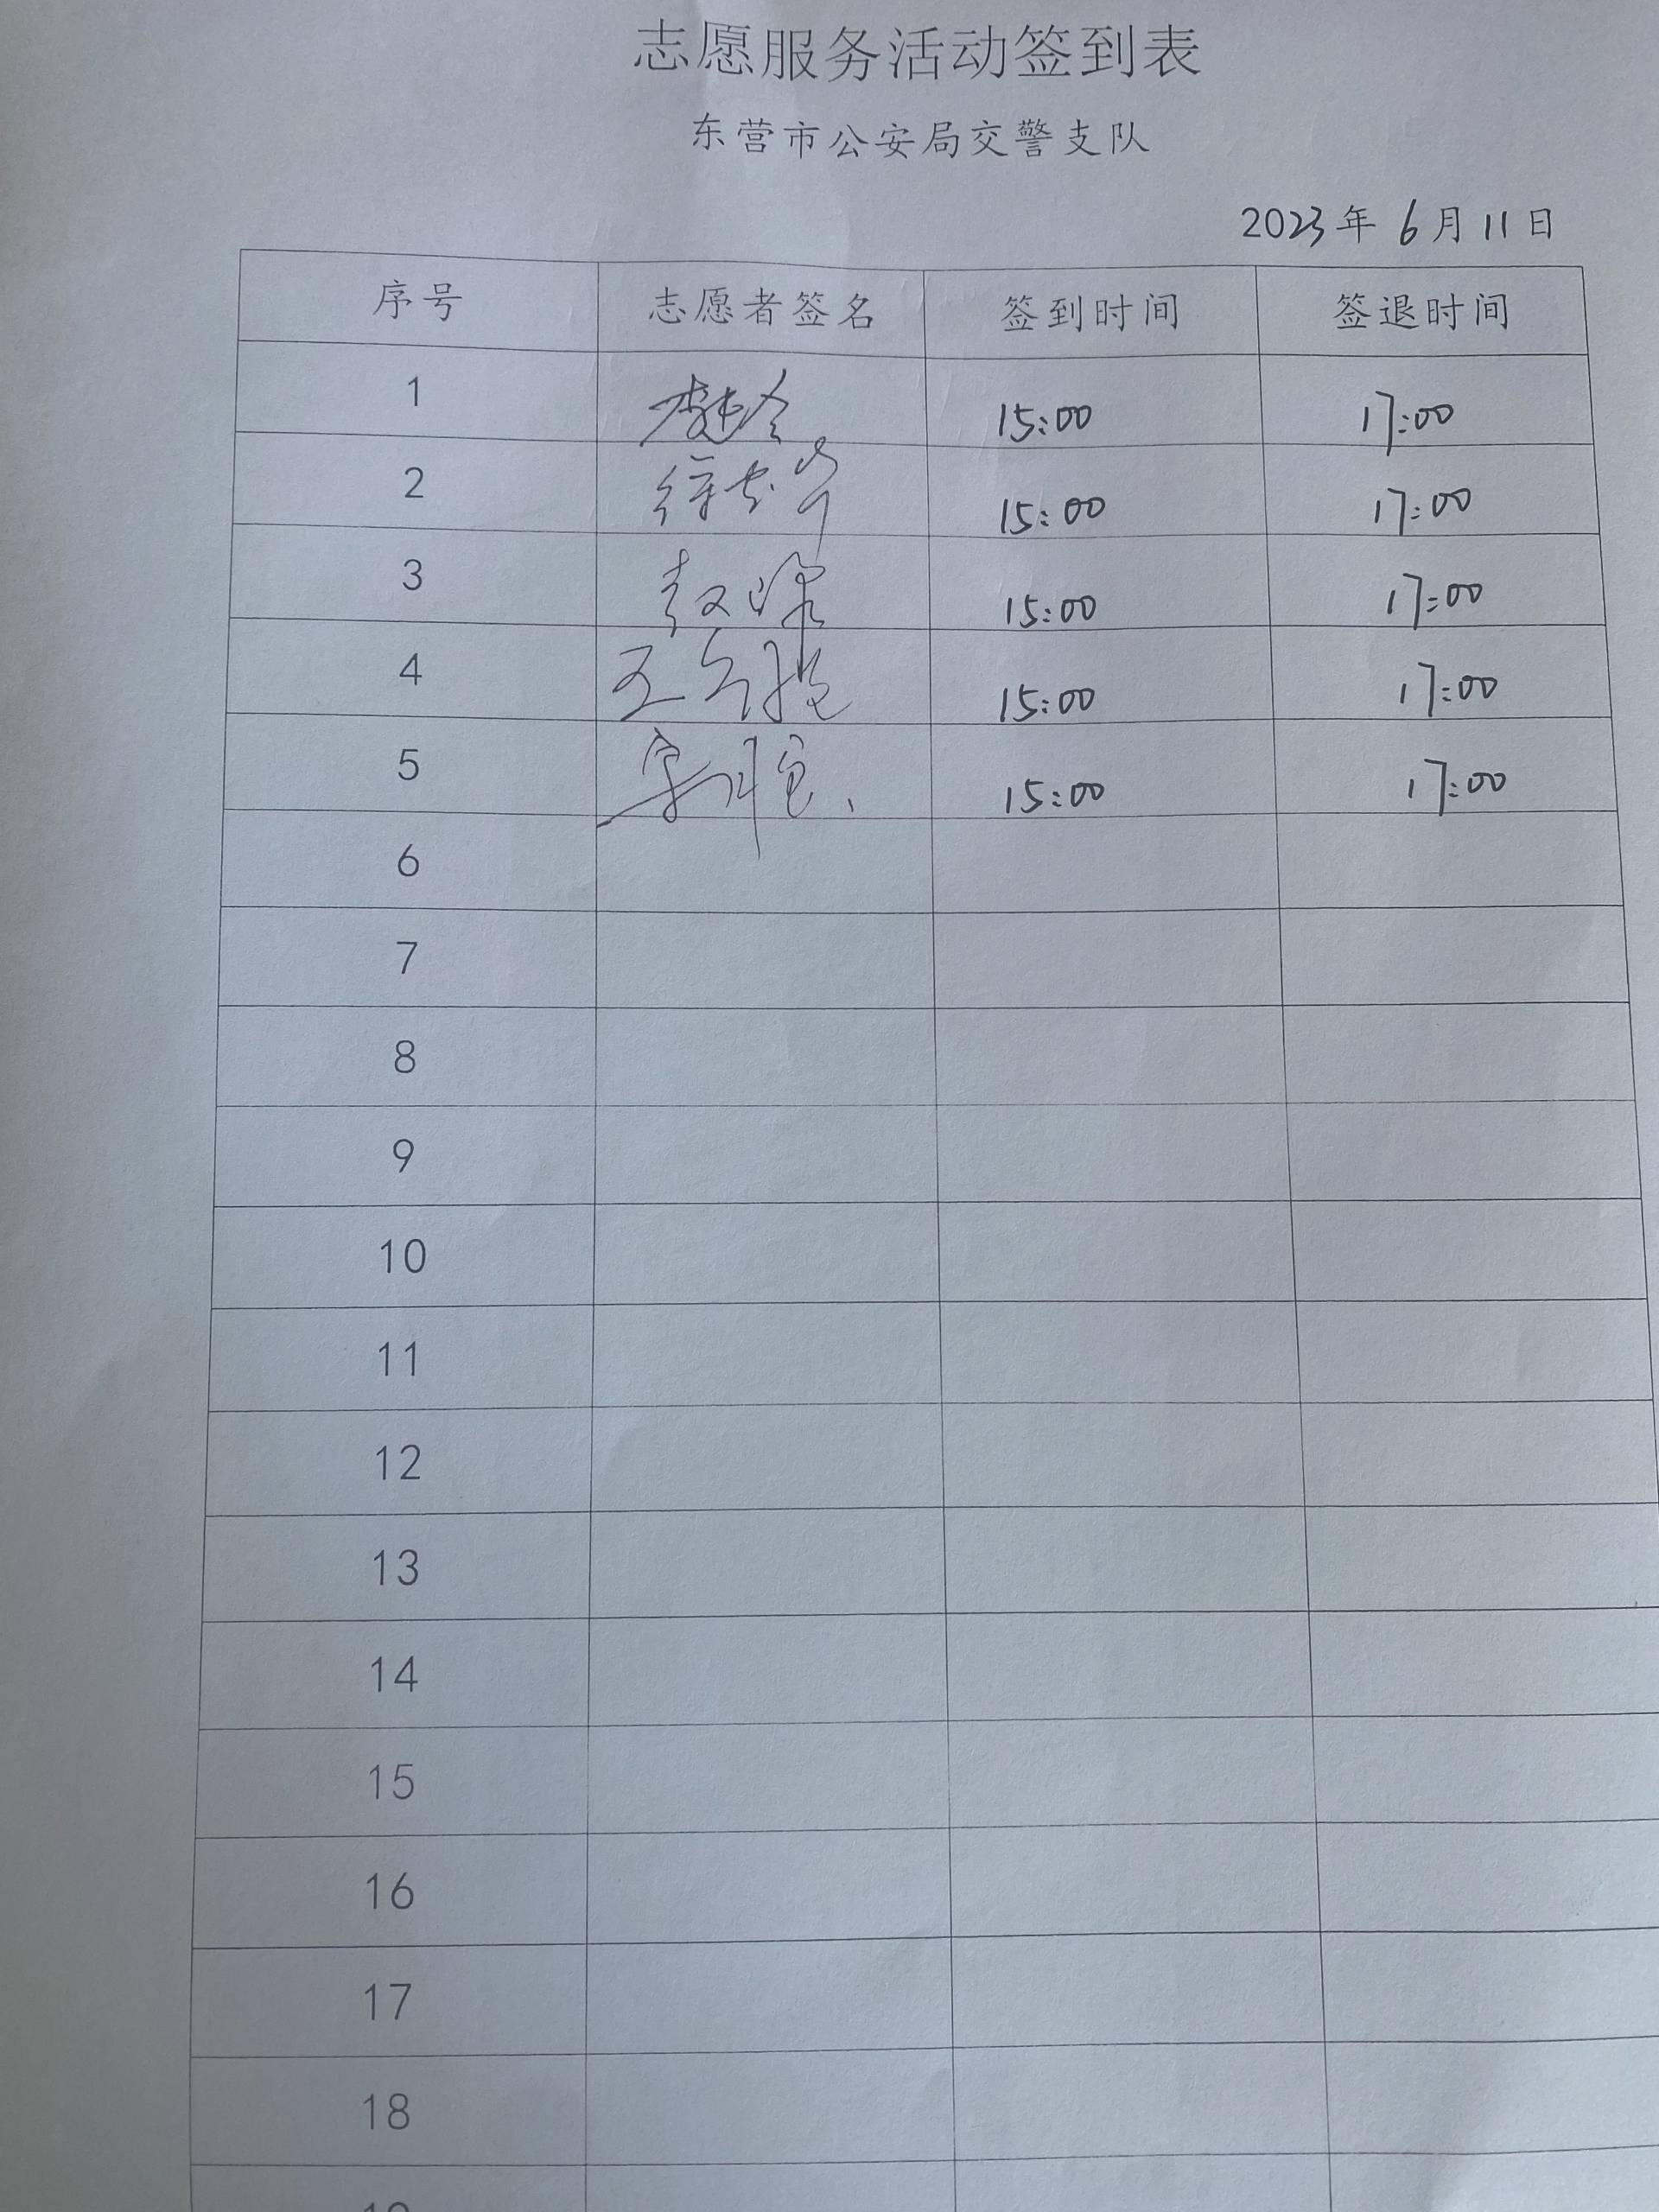 志愿服务活动签到表
东营市公安局交警支队
2023年 6月11日
序号 志愿者签名 签到时间 签退时间
1 15:00 17:00
2 15:00 17:00
3 15:00 17:00
4 15:00 17:00
5 15:00 17:00
6
7
8
9
10
11
12
13
14
15
16
17
18